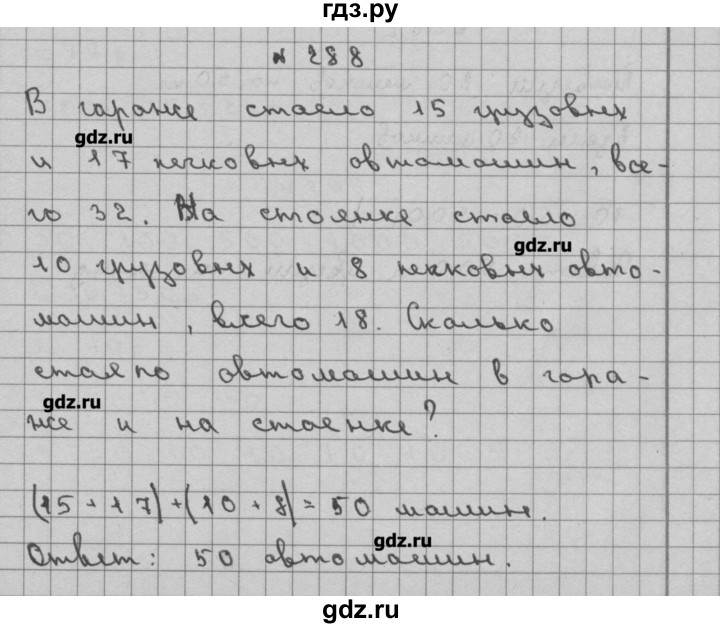 гдз.ру
№ 288
В гараже стояло 15 грузовых
gdz.ru
и 17 легковых автомашин, все-
го 32. На стоянке стояло
gdz.ru
10 грузовых и 8 легковых авто-
машин, всего 18. Сколько
стояло автомашин в гара-
gdz.ru
же и на стоянке?
(15 + 17) + (10 + 8) = 50 машин.
gdz.ru
Ответ: 50 автомашин.
gdz.ru